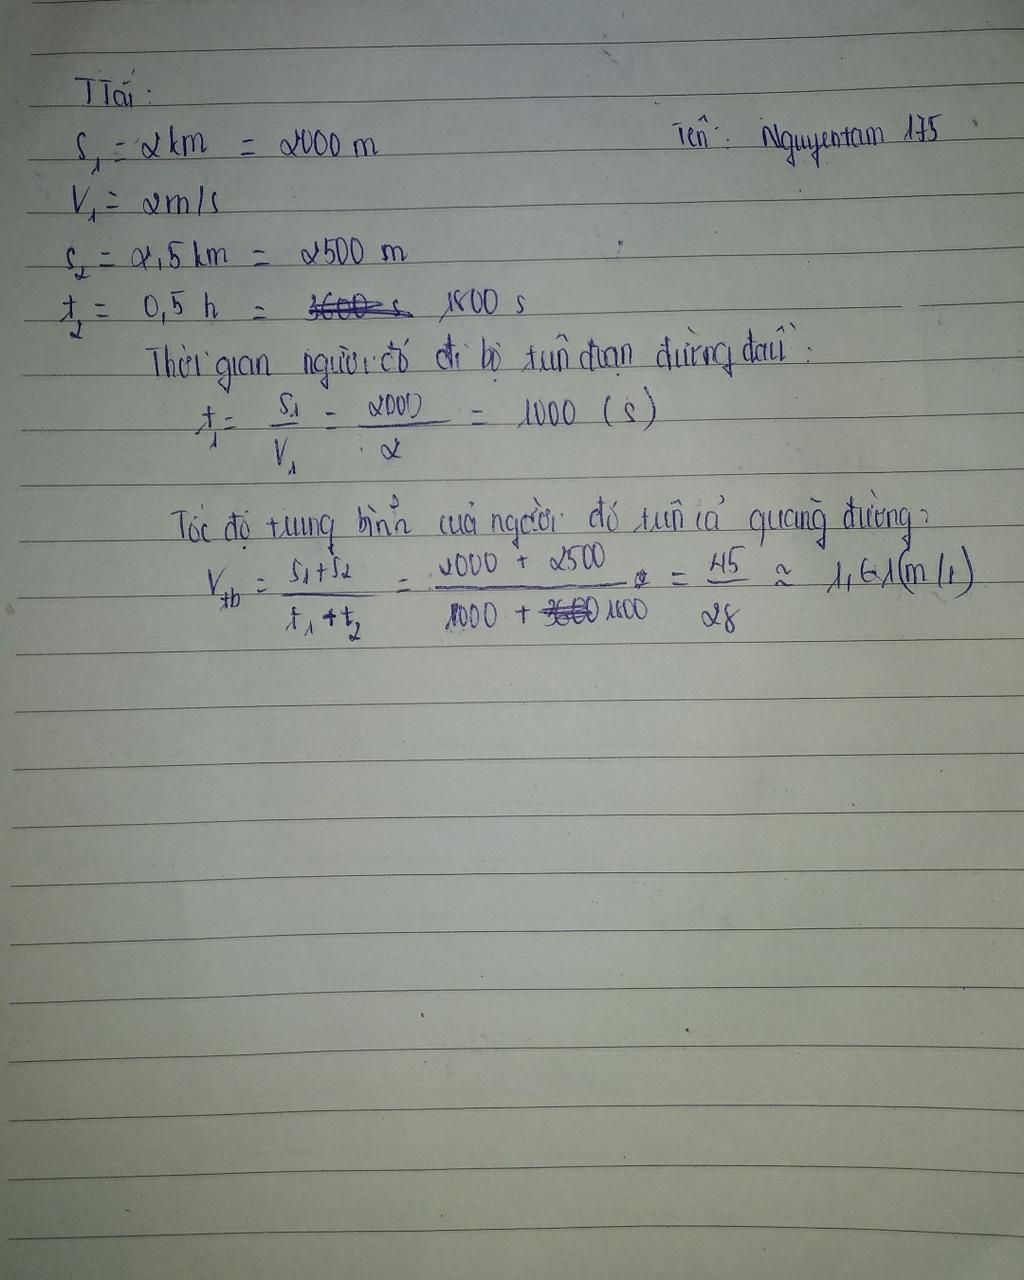 TTắt:
S₁ = 2km = 2000 m
Tên: Nguyentam 175
V₁ = 2m/s
S₂ = 2,5 km = 2500 m
t₂ = 0,5 h = 1800 s
Thời gian người đó đi bộ trên đoạn đường đầu:
t₁ = S₁/V₁ = 2000/2 = 1000 (s)
Tốc độ trung bình của người đó trên cả quãng đường:
Vtb = S₁+S₂/t₁+t₂ = 2000 + 2500/1000 + 1800 = 45/28 ≈ 1,61(m/s)